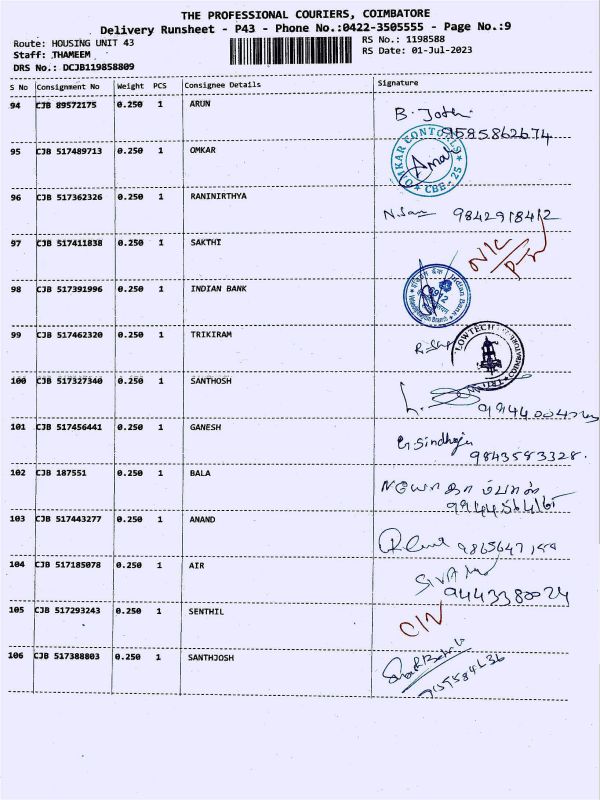 THE PROFESSIONAL COURIERS, COIMBATORE
Delivery Runsheet - P43 - Phone No.:0422-3505555 - Page No.:9
Route: HOUSING UNIT 43
RS No.: 1198588
Staff: THAMEEM
RS Date: 01-Jul-2023
DRS No.: DCJB119858809
S No Consignment No Weight PCS Consignee Details Signature
94 CJB 89572175 0.250 1 ARUN B. Jothi
9585862674
95 CJB 517489713 0.250 1 OMKAR OMKAR CONTOLS CBE-25
96 CJB 517362326 0.250 1 RANINIRTHYA 9842918412
97 CJB 517411838 0.250 1 SAKTHI N/C
98 CJB 517391996 0.250 1 INDIAN BANK Indian Bank
99 CJB 517462320 0.250 1 TRIKIRAM LOWTECH
100 CJB 517327340 0.250 1 SANTHOSH
101 CJB 517456441 0.250 1 GANESH G Sindhuja
9843583328.
102 CJB 187551 0.250 1 BALA
9944564165
103 CJB 517443277 0.250 1 ANAND
104 CJB 517185078 0.250 1 AIR
9443380024
105 CJB 517293243 0.250 1 SENTHIL C/N
106 CJB 517388803 0.250 1 SANTHJOSH